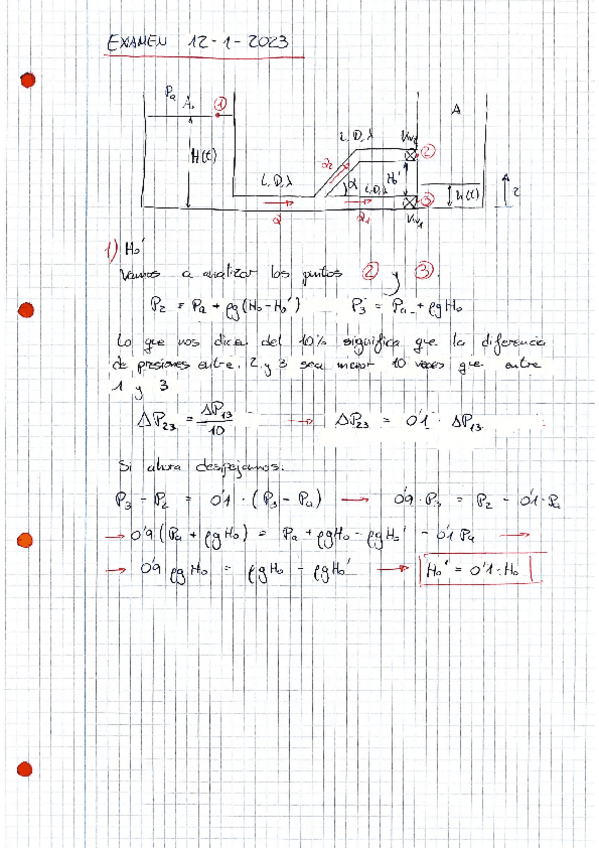 EXAMEN 12-1-2023
Pa A. ①
A
H(t)
L, D, λ
Q
L, D, λ
Q₂
α
H₀'
L, D, λ
Q₁
②
③
h(t)
z
1) H₀'
Vamos a analizar los puntos ② y ③.
P₂ = Pa + ρg(H₀-H₀') P₃ = Pa + ρgH₀
Lo que nos dice del 10% significa que la diferencia
de presiones entre 2 y 3 sea menor 10 veces que entre
1 y 3
ΔP₂₃ = ΔP₁₃/10 → ΔP₂₃ = 0'1 · ΔP₁₃
Si ahora despejamos:
P₃ - P₂ = 0'1 · (P₃ - Pa) → 0'9 · P₃ = P₂ - 0'1 · Pa
→ 0'9 (Pa + ρgH₀) = Pa + ρgH₀ - ρgH₀' - 0'1 Pa →
→ 0'9 ρgH₀ = ρgH₀ - ρgH₀' → H₀' = 0'1 · H₀